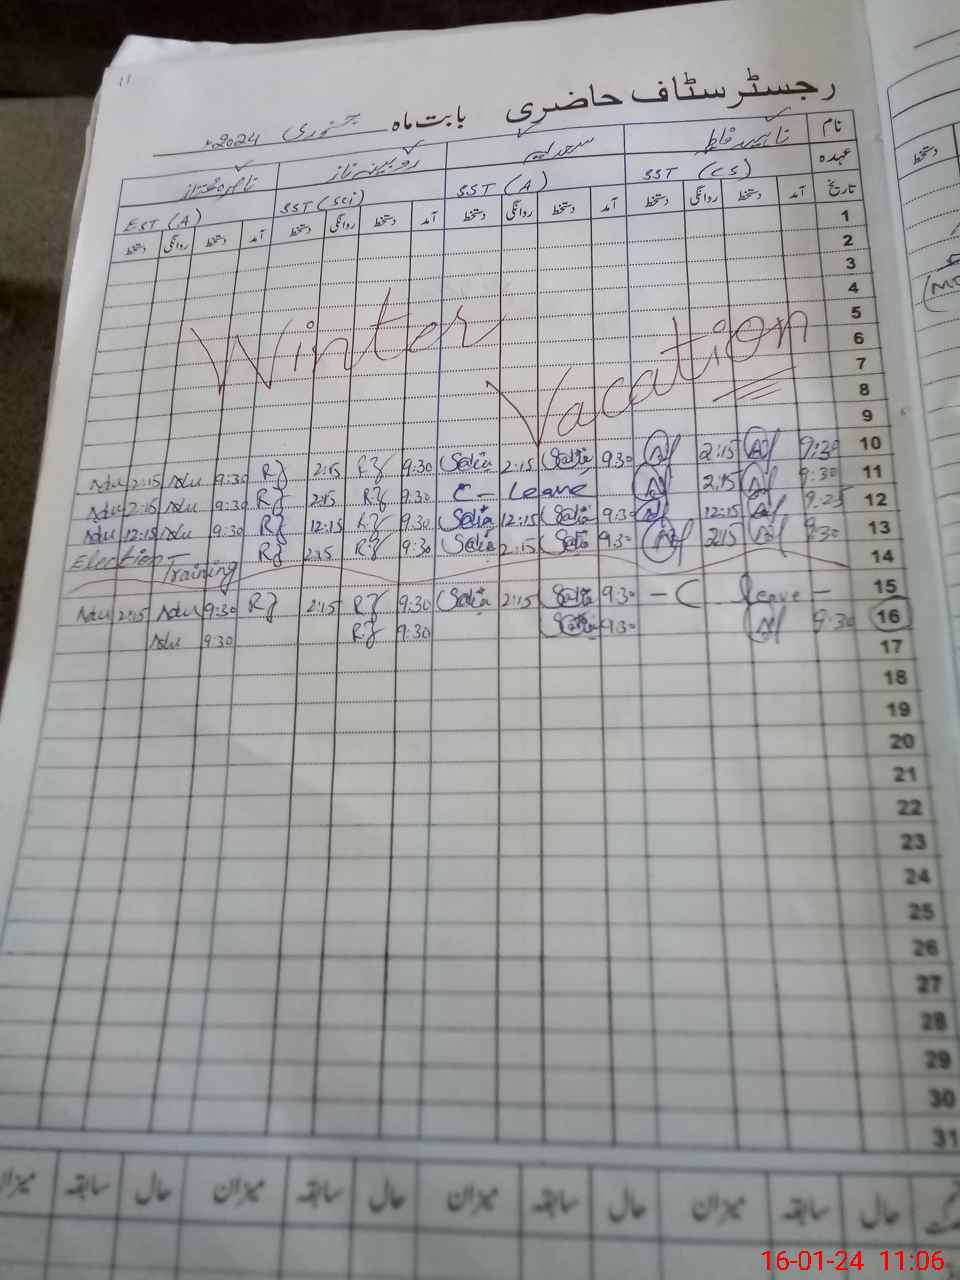 11
رجسٹر سٹاف حاضری بابت ماہ جنوری 2024ء
نام ناہید فاطمہ سعدیہ روبینہ ناز
عہدہ SST (CS) SST (A) SST (Sci) EST (A)
تاریخ آمد دستخط روانگی دستخط آمد دستخط روانگی دستخط آمد دستخط روانگی دستخط آمد دستخط روانگی دستخط
1
2
3
4
5
6
7
8
9
Winter
Vacation
10 9:30 2:15 9:30 Sadia 2:15 Sadia 9:30 RZ 2:15 RZ 9:30 2:15
11 9:30 2:15 C - Leave 9:30 RZ 2:15 RZ 9:30 2:15
12 9:25 12:15 9:30 Sadia 12:15 Sadia 9:30 RZ 12:15 RZ 9:30 12:15
13 9:30 2:15 9:30 Sadia 2:15 Sadia 9:30 RZ 2:15 RZ Election Training
14
15 - C leave - 9:30 Sadia 2:15 Sadia 9:30 RZ 2:15 RZ 9:30 2:15
16 9:30 9:30 Sadia 9:30 RZ 9:30
17
18
19
20
21
22
23
24
25
26
27
28
29
30
31
حال سابقہ میزان حال سابقہ میزان حال سابقہ میزان حال سابقہ میزان
دستخط
16-01-24 11:06